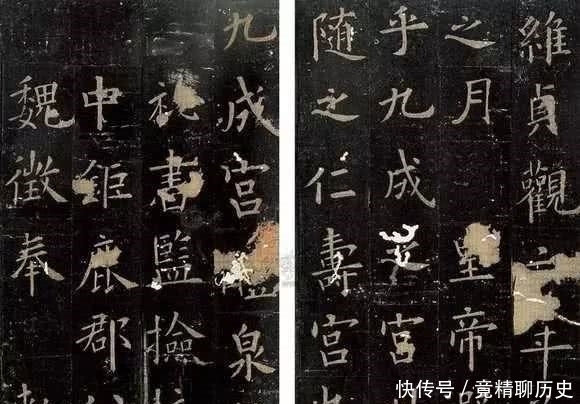 九成宮醴泉
秘書監撿
中鉅鹿郡
魏徵奉
維貞觀年
之月皇帝
乎九成之宮
随之仁壽宮
快传号/竟精聊历史